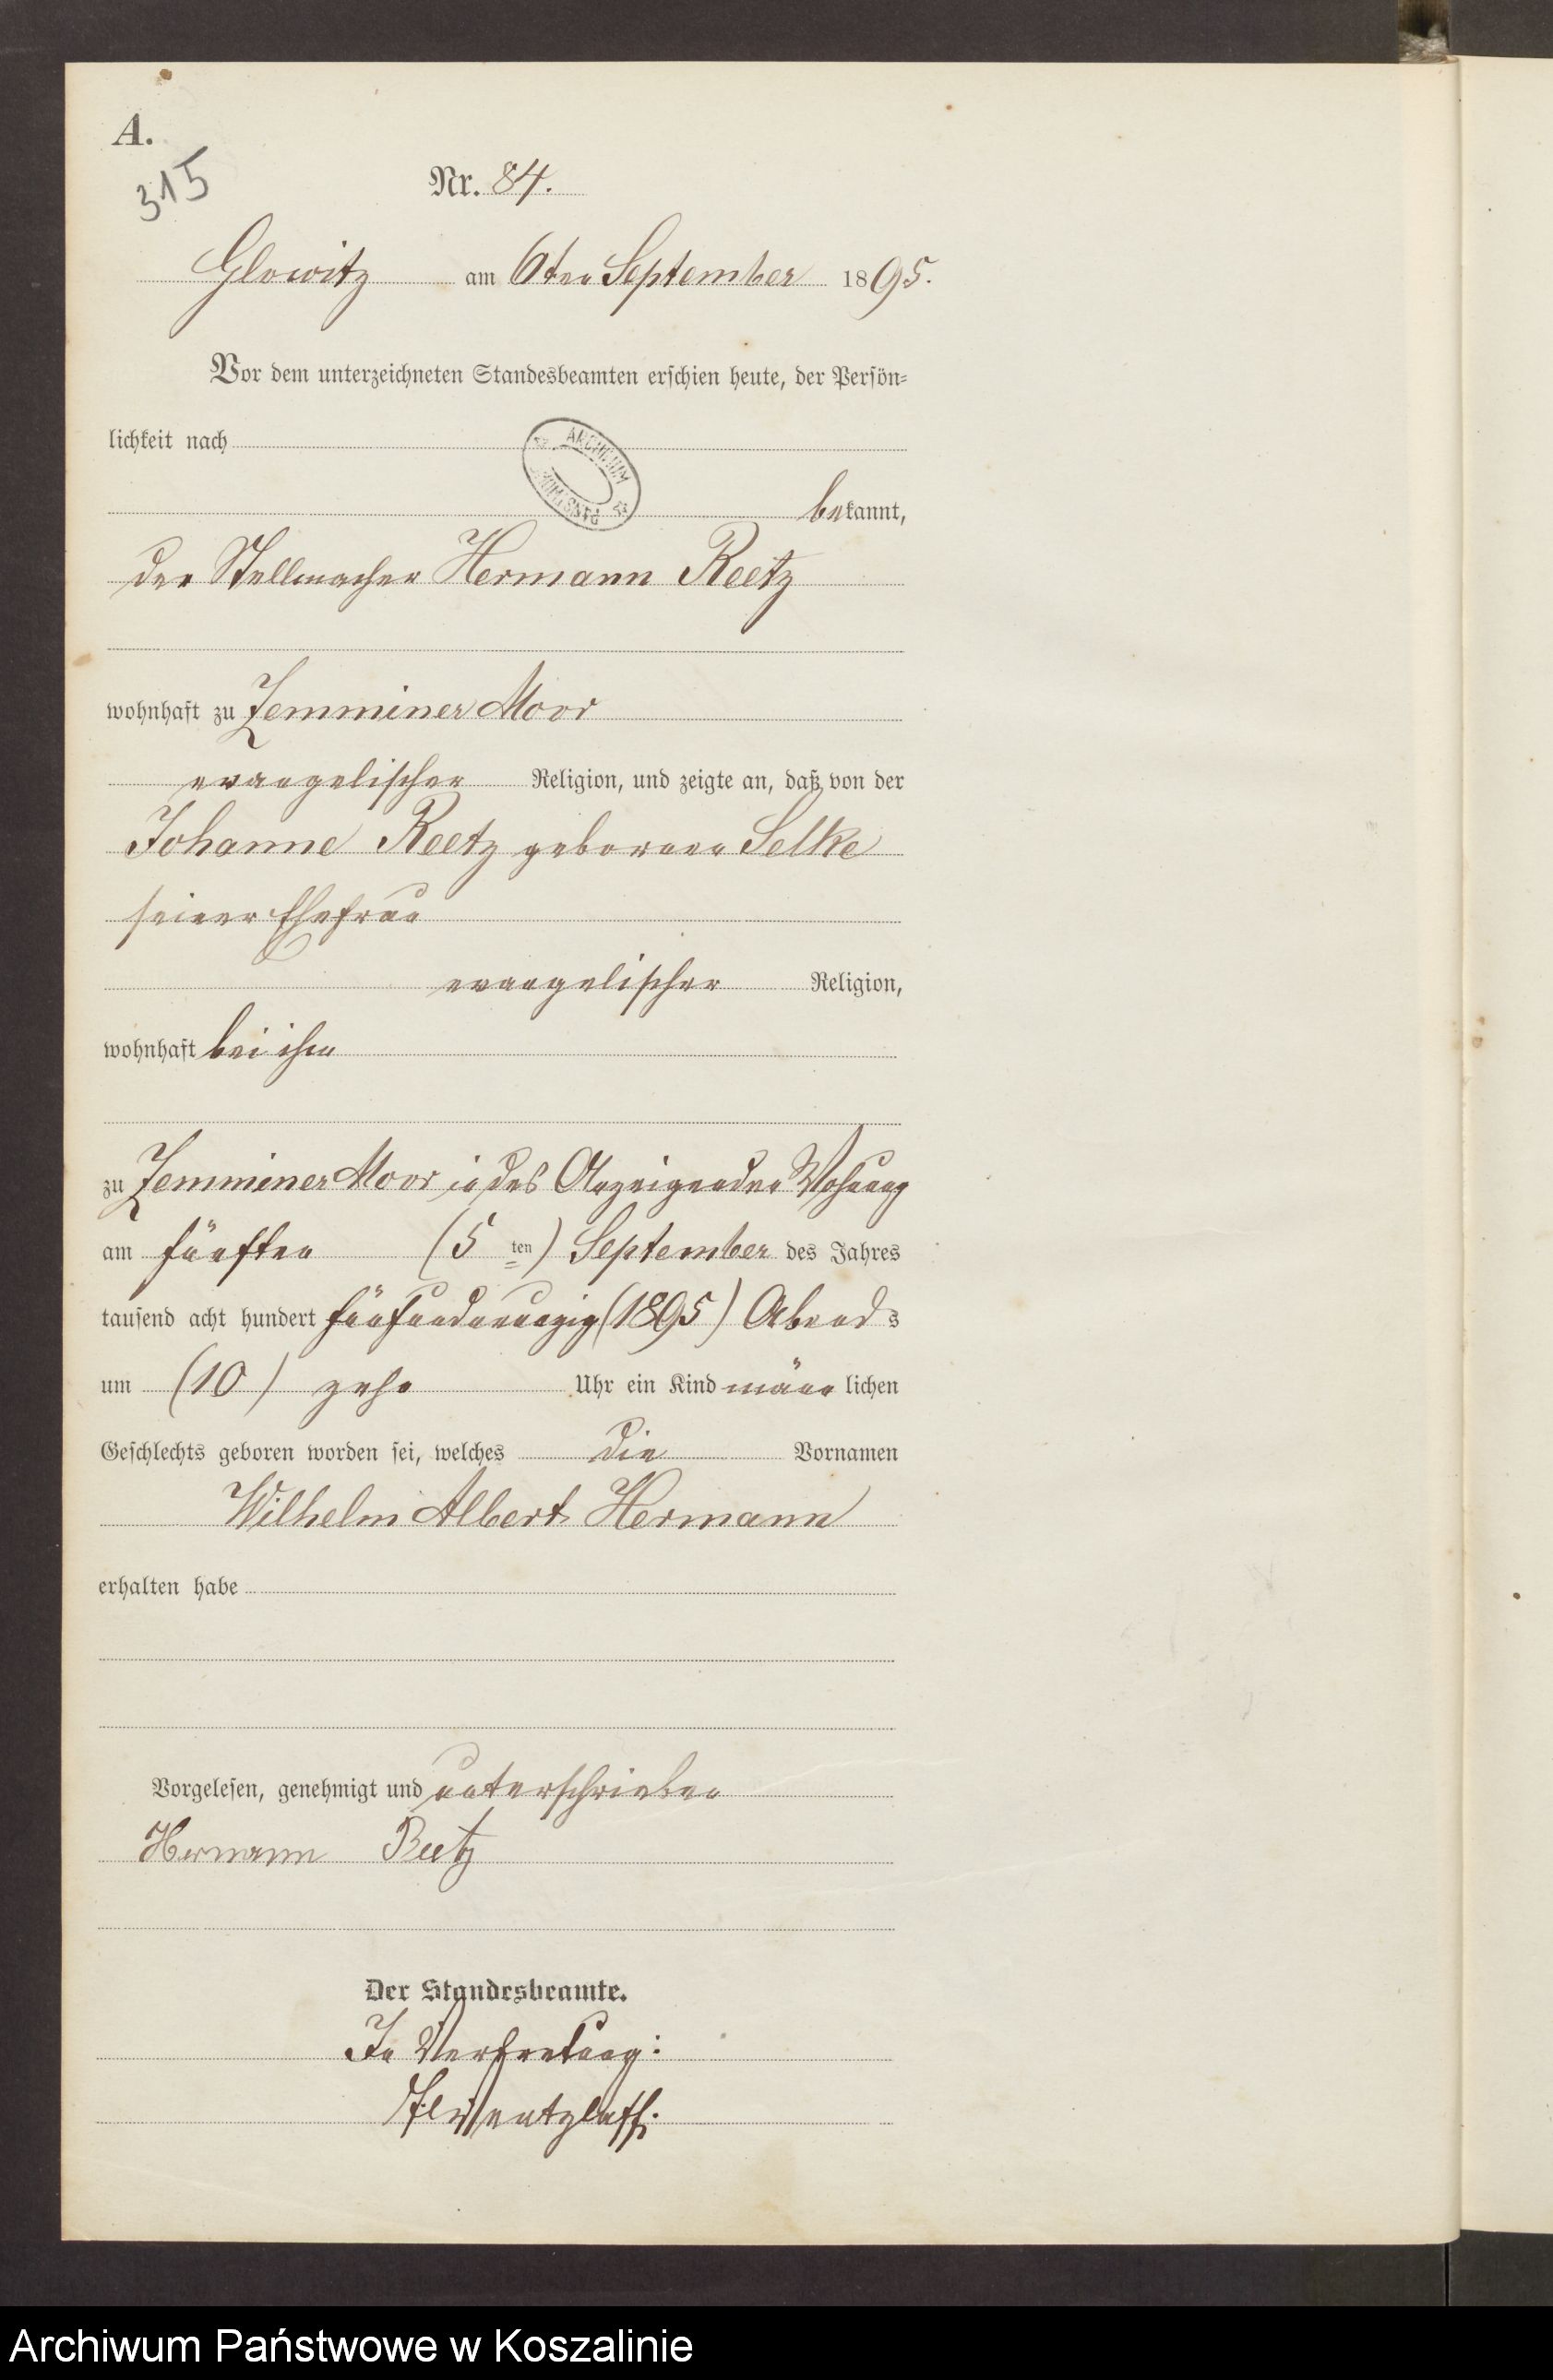 A.
315
Nr. 84.
Glowitz am 6ten September 1895.
Vor dem unterzeichneten Standesbeamten erschien heute, der Persön-
lichkeit nach
ARCHIWUM
PAŃSTWOWE
bekannt,
der Stellmacher Hermann Reetz
wohnhaft zu Zemminer Moor
evangelischer Religion, und zeigte an, daß von der
Johanne Reetz geborenen Selke
seiner Ehefrau
evangelischer Religion,
wohnhaft bei ihm
zu Zemminer Moor in des Anzeigenden Wohnung
am fünften (5 ten) September des Jahres
tausend acht hundert fünfundneunzig (1895) Abends
um (10) zehn Uhr ein Kind männlichen
Geschlechts geboren worden sei, welches die Vornamen
Wilhelm Albert Hermann
erhalten habe
Vorgelesen, genehmigt und unterschrieben
Hermann Reetz
Der Standesbeamte.
In Vertretung:
Archiwum Państwowe w Koszalinie